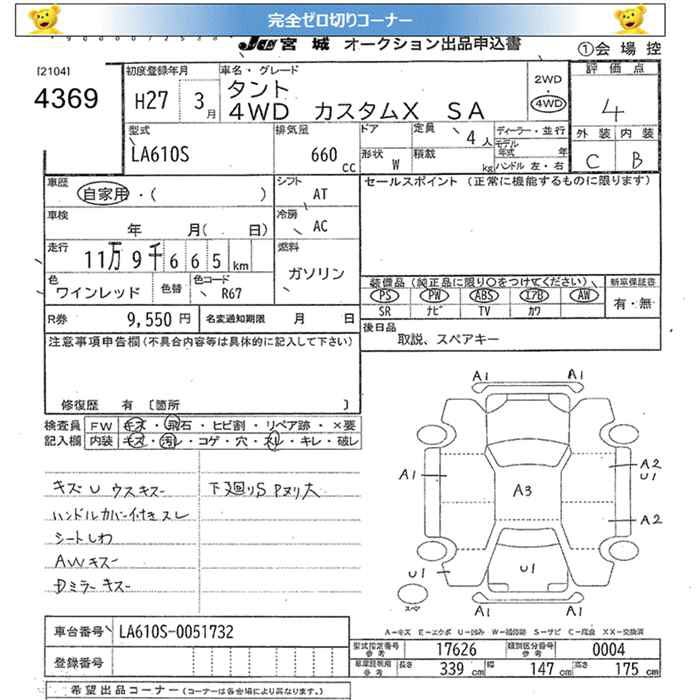 完全ゼロ切りコーナー
宮城 オークション出品申込書
①会場控
[2104]
4369
初度登録年月
H27 3月
車名・グレード
タント
4WD カスタムX SA
2WD
4WD
評価点
4
外装 内装
C B
型式
LA610S
排気量
660 cc
ドア
形状 W
定員 4人
積載 kg
ディーラー・並行
モデル年式 年
ハンドル 左・右
車歴
自家用・( )
シフト
AT
セールスポイント (正常に機能するものに限ります)
車検
年 月( 日)
冷房
AC
走行
11万9千665km
燃料
ガソリン
色
ワインレッド
色替
色コード
R67
装備品(純正品に限り○をつけてください)
新車保証書
PS PW ABS エアB AW
SR ナビ TV カワ
有・無
R券 9,550円
名変通知期限 月 日
後日品
取説、スペアキー
注意事項申告欄(不具合内容等は具体的に記入して下さい)
修復歴 有 〔箇所 〕
検査員記入欄
FW キズ・飛石・ヒビ割・リペア跡・×要
内装 キズ・汚レ・コゲ・穴・スレ・キレ・破レ
キズU ウスキズー
下廻りS Pヌリ大
ハンドルカバー付きスレ
シートしわ
AWキズー
Dミラーキズー
A1 A1
A1 A3 A2
U1
A2
U1 U1
A1 A1
スペア
A-キズ E-エクボ U-凹み W-補修跡 S-サビ C-腐食 XX-交換済
車台番号 LA610S-0051732
登録番号
型式指定番号 参考 17626
類別区分番号 参考 0004
車庫証明用 参考 長さ 339cm 幅 147cm 高さ 175cm
希望出品コーナー(コーナーは各会場により異なります。)